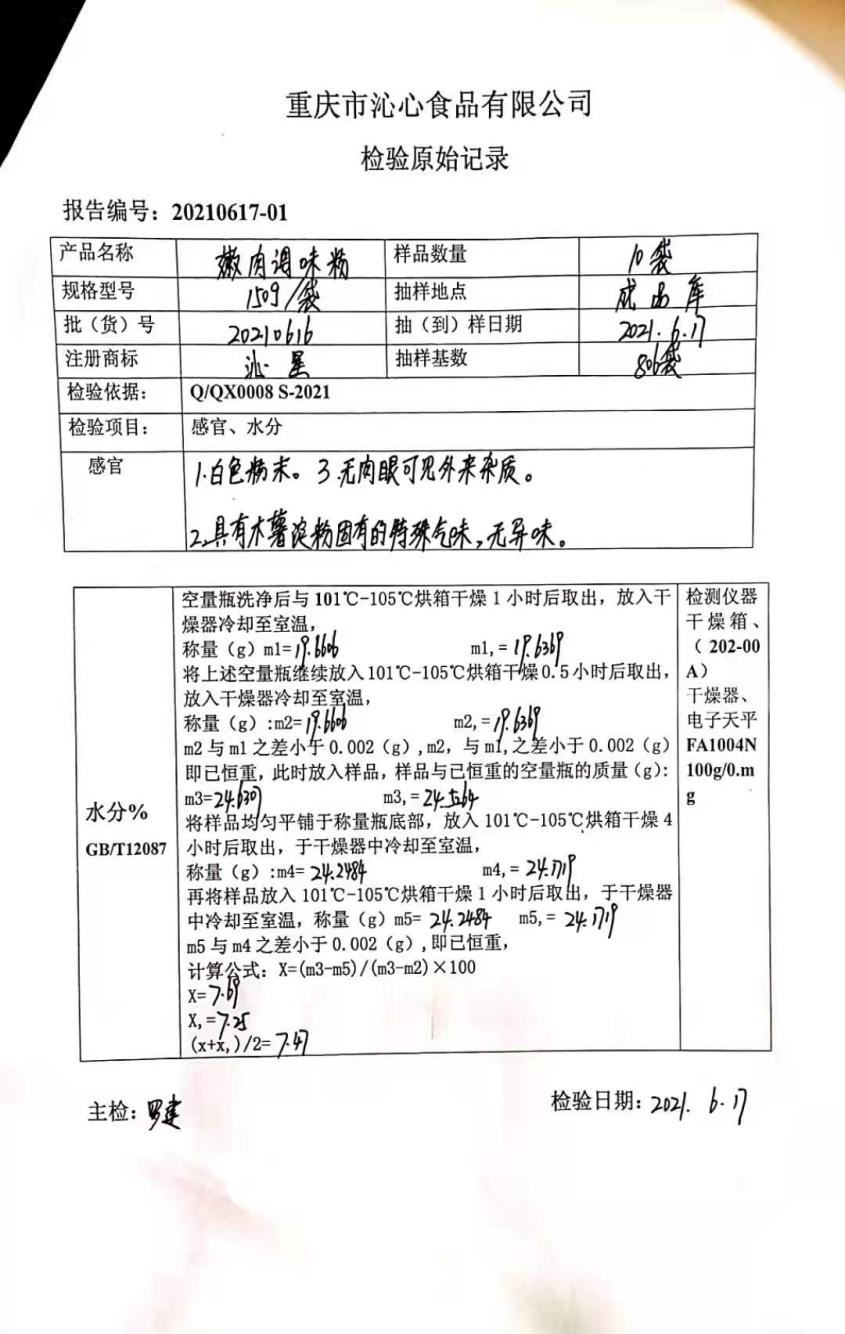 重庆市沁心食品有限公司
检验原始记录
报告编号：20210617-01
产品名称 嫩肉调味粉 样品数量 10袋
规格型号 150g/袋 抽样地点 成品库
批（货）号 20210616 抽（到）样日期 2021.6.17
注册商标 沁星 抽样基数 806袋
检验依据： Q/QX0008 S-2021
检验项目： 感官、水分
感官 1.白色粉末。3.无肉眼可见外来杂质。
2.具有木薯淀粉固有的特殊气味，无异味。
空量瓶洗净后与 101℃-105℃烘箱干燥 1 小时后取出，放入干
燥器冷却至室温，
称量（g）m1=19.6606 m1,=19.6369
将上述空量瓶继续放入 101℃-105℃烘箱干燥 0.5 小时后取出，
放入干燥器冷却至室温，
称量（g）:m2=19.6606 m2,=19.6369
m2 与 m1 之差小于 0.002（g）,m2，与 m1,之差小于 0.002（g）
即已恒重，此时放入样品，样品与已恒重的空量瓶的质量（g）:
m3=24.6307 m3,=24.5264
将样品均匀平铺于称量瓶底部，放入 101℃-105℃烘箱干燥 4
小时后取出，于干燥器中冷却至室温，
称量（g）:m4= 24.2484 m4,= 24.1719
再将样品放入 101℃-105℃烘箱干燥 1 小时后取出，于干燥器
中冷却至室温，称量（g）m5= 24.2484 m5,= 24.1719
m5 与 m4 之差小于 0.002（g）,即已恒重，
计算公式：X=(m3-m5)/(m3-m2)×100
X=7.69
X,=7.25
(x+x,)/2=7.47
水分%
GB/T12087
检测仪器
干燥箱、
（ 202-00
A）
干燥器、
电子天平
FA1004N
100g/0.m
g
主检：罗建 检验日期：2021.6.17